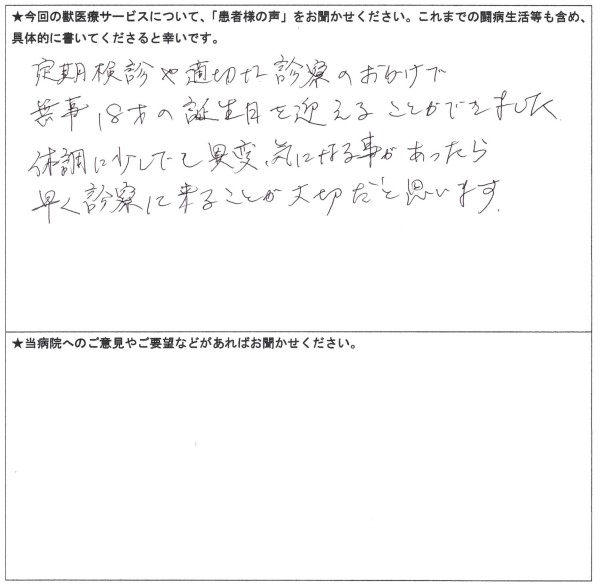 ★今回の獣医療サービスについて、「患者様の声」をお聞かせください。これまでの闘病生活等も含め、
具体的に書いてくださると幸いです。
定期検診や適切な診察のおかげで
無事、18才の誕生日を迎えることができました。
体調に少しでも異変、気になる事があったら
早く診察に来ることが大切だと思います。
★当病院へのご意見やご要望などがあればお聞かせください。